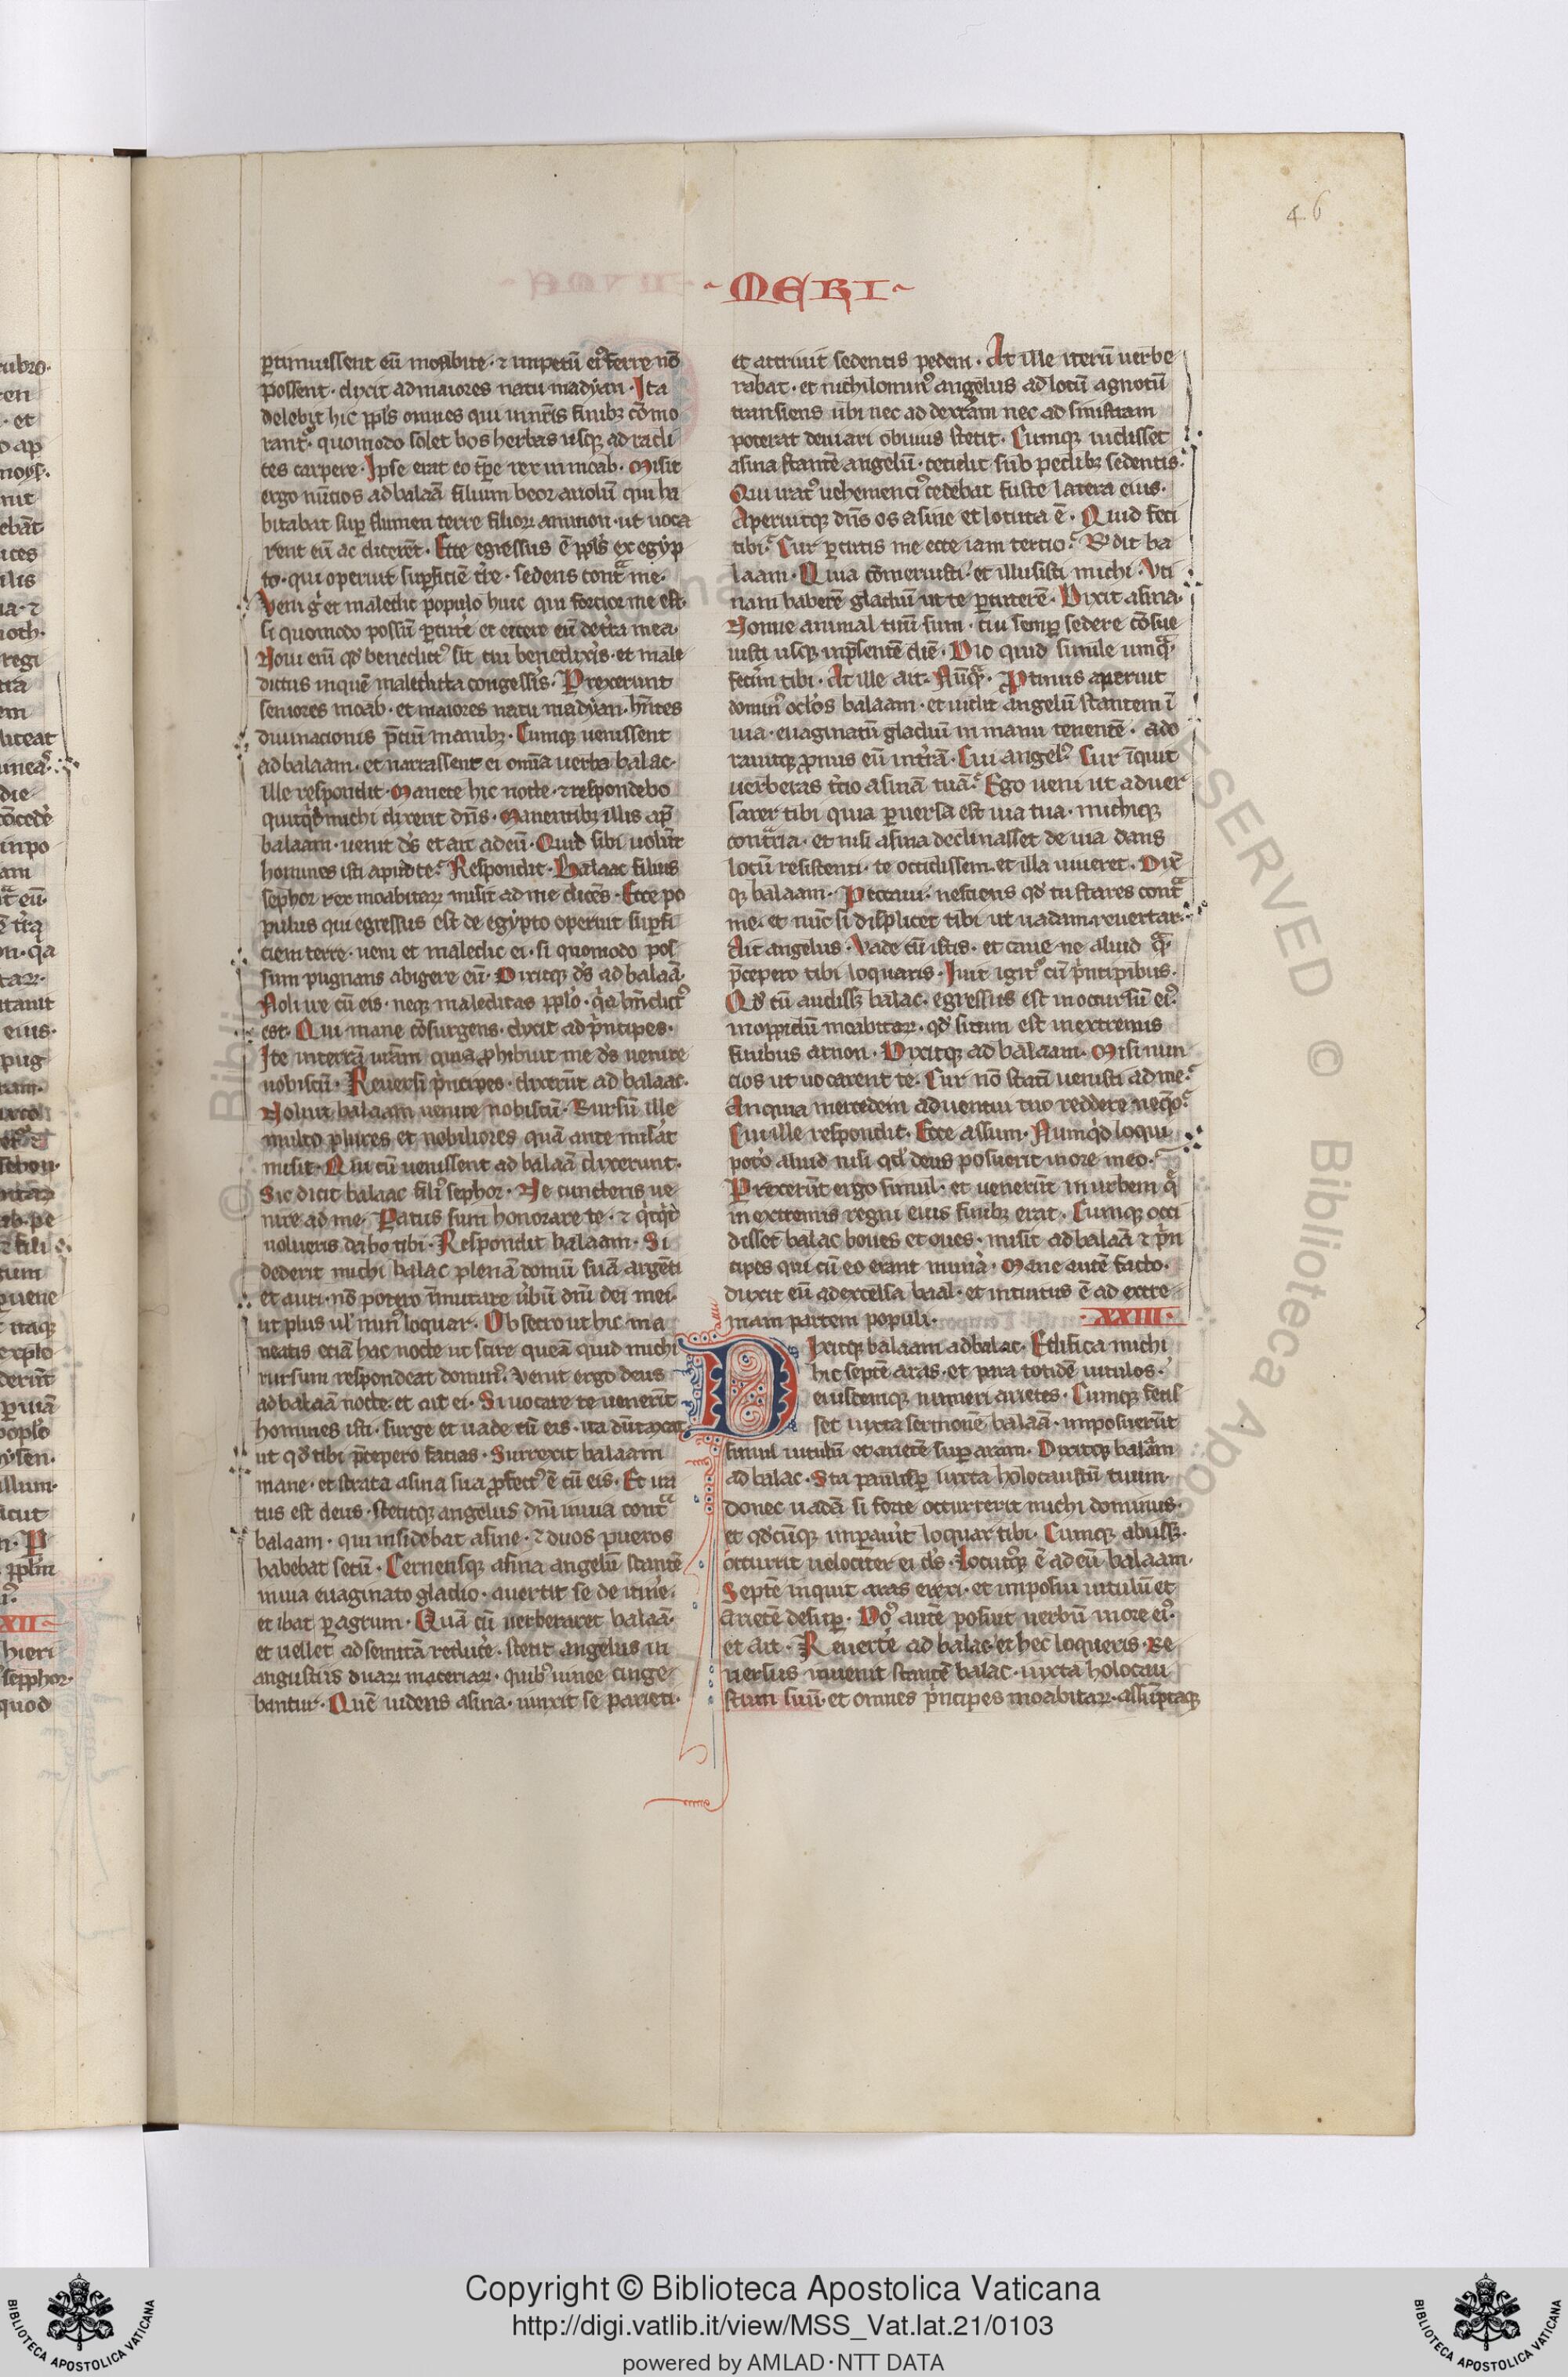 46
MERI
ꝑtimuissent eū moabite · ⁊ impetū eiꝰ ferre nō
possent · dixit ad maiores natu madyan · Ita
delebit hic ppl̄s omnes qui in nr̄is finibꝫ cōmo
rant᷑ · quomodo solet bos herbas usqꝫ ad radi
ces carpere · Ipse erat eo tp̄e rex in moab · Misit
ergo nūcios ad balaā filium beor ariolū qui ha
bitabat suꝑ flumen terre filioꝝ ammon · ut uoca
rent eū ac dicerēt · Ecce egressus ē ppl̄s ex egyp
to · qui operuit suꝑficiē t̄re · sedens contᵃ me ·
Veni gͥ et maledic populo huic qui fortior me est ·
si quomodo possū ꝑcut̄e et eicere eū de t̄ra mea ·
Noui enī qd̄ benedictꝰ sit cui benedixis · et male
dictus in quē maledicta congessis · Prexerunt
seniores moab · et maiores natu madyan · hn̄tes
diuinacionis p̄ciū in manibꝫ · Cumqꝫ uenissent
ad balaam · et narrassent ei om̄ia uerba balac ·
ille respondit · Manete hic nocte · ⁊ respondebo
quicqͥd michi dixerit dn̄s · Manentibꝫ illis ap̄
balaam · uenit ds̄ et ait ad eū · Quid sibi uolūt
homines isti apud te · Respondit · Balaac filius
sephor rex moabitaꝝ misit ad me dicēs · Ecce po
pulus qui egressus est de egypto operuit suꝑfi
ciem terre · ueni et maledic ei · si quomodo pos
sum pugnans abigere eū · Dixitqꝫ ds̄ ad balaā ·
Noli ire cū eis · neqꝫ maledicas pplō · qͥa bn̄dictꝰ
est · Qui mane cōsurgens · dixit ad pͥncipes ·
Ite in terrā ur̄am quia ꝓhibuit me ds̄ uenire
uobiscū · Reuersi pͥncipes · dixerūt ad balaac ·
Noluit balaam uenire nobiscū · Rursū ille
multo plures et nobiliores quā ante misāt
misit · Qui cū uenissent ad balaā dixerunt ·
Sic dicit balaac filiꝰ sephor · Ne cuncteris ue
nire ad me · Patus sum honorare te · ⁊ qͥcqͥd
uolueris dabo tibi · Respondit balaam · Si
dederit michi balac plenā domū suā argēti
et auri · nō potero īmutare ūbū dn̄i dei mei ·
ut plus ul̄ minꝰ loquar · Obsecro ut hic ma
neatis eciā hac nocte ut scire queā quid michi
rursum respondeat dominꝰ · Venit ergo deus
ad balaā nocte · et ait ei · Si uocare te uenerūt
homines isti · surge et uade cū eis · ita dūtaxat
ut qd̄ tibi p̄cepero facias · Surrexit balaam
mane · et strata asina sua ꝓfectꝰ ē cū eis · Et ira
tus est deus · Stetitqꝫ angelus dn̄i in uia contᵃ
balaam · qui insidebat asine · ⁊ duos pueros
habebat secū · Cernensqꝫ asina angelū stantē
in uia euaginato gladio · auertit se de itine ·
et ibat ꝑ agrum · Quā cū uerberaret balaā ·
et uellet ad semitā reduc̄e · stetit angelus in
angustiis duaꝝ maceriaꝝ · quibꝰ uinee cinge
bantur · Quē uidens asina · iunxit se parieti ·
et attriuit sedentis pedem · At ille iterū uerbe
rabat · et nichilominꝰ angelus ad locū angustū
transiens ubi nec ad dextram nec ad sinistram
poterat deuiari obuius stetit · Cumqꝫ uidisset
asina stantē angelū · cecidit sub pedibꝫ sedentis ·
Qui iratꝰ uehemenciꝰ cedebat fuste latera eius ·
Aperuitqꝫ dn̄s os asine et locuta ē · Quid feci
tibi · Cur ꝑcutis me ecce iam tercio · Rdit ba
laam · Quia cōmeruisti · et illusisti michi · Vti
nam haberē gladiū ut te ꝑcuterē · Dixit asina ·
Nonne animal tuū sum · cui semꝑ sedere cōsue
uisti usqꝫ in p̄sentē diē · Dic quid simile umqᵃ
fecīm tibi · At ille ait · Nūqᵃ · Ptinus aperuit
dominꝰ oclōs balaam · et uidit angelū stantem ī
uia · euaginatū gladiū in manu tenentē · ado
rauitqꝫ pronus eū in t̄rā · Cui angelꝰ · Cur īquit
uerberas t̄cio asinā tuā · Ego ueni ut aduer
sarer tibi quia ꝑuersa est uia tua · michiqꝫ
contᵃria · et nisi asina declinasset de uia dans
locū resistenti · te occidissem · et illa uiueret · Dix̄
qꝫ balaam · Peccaui · nesciens qd̄ tu stares contᵃ
me · et nūc si displicet tibi ut uadam · reuertar ·
Ait angelus · Vade cū istis · et caue ne aliud qᵃ
p̄cepero tibi loquaris · Iuit igitᷣ cū pͥncipibus ·
Qd̄ cū audissꝫ balac · egressus est in occursū eiꝰ ·
in oppidū moabitaꝝ · qd̄ situm est in extremis
finibus arnon · Dixitqꝫ ad balaam · Misi nun
cios ut uocarent te · Cur nō statī uenisti ad me ·
An quia mercedem aduentui tuo reddere neqͦo ·
Cui ille respondit · Ecce assum · Numqͥd loqui
potō aliud nisi qd̄ deus posuerit in ore meo ·
Prexerūt ergo simul · et uenerūt in urbem q̄
in extremis regni eius finibꝫ erat · Cumqꝫ occi
disset balac boues et oues · misit ad balaā ⁊ pͥn
cipes qui cū eo erant mun̄a · Mane autē facto ·
duxit eū ad excelsa baal · et intuitus ē ad extre
mam partem populi · XXIII ·
Dixitqꝫ balaam ad balac · Edifica michi
hic septē aras · et para totidē uitulos ·
eiusdemqꝫ numeri arietes · Cumqꝫ fecis
set iuxta sermonē balaā · imposuerūt
simul uitulū et arietē suꝑ aram · Dixitqꝫ balaam
ad balac · Sta paulisꝑ iuxta holocaustū tuum ·
donec uadā si forte occurrerit michi dominus ·
et qd̄cūqꝫ imꝑaūit loquar tibi · Cumqꝫ abiissꝫ ·
occurrit uelociter ei ds̄ · Locutusqꝫ ē ad eū balaam ·
Septē inquit aras erexi · et imposui uitulū et
arietē desuꝑ · Dn̄s autē posuit uerbū in ore eiꝰ ·
et ait · Reuertē ad balac · et hec loqueris · Re
uersus inuenit stantē balac · iuxta holocau
stum suū · et omnes pͥncipes moabitaꝝ · assūptaqꝫ
Copyright © Biblioteca Apostolica Vaticana
http://digi.vatlib.it/view/MSS_Vat.lat.21/0103
powered by AMLAD·NTT DATA
BIBLIOTECA APOSTOLICA VATICANA
BIBLIOTECA APOSTOLICA VATICANA